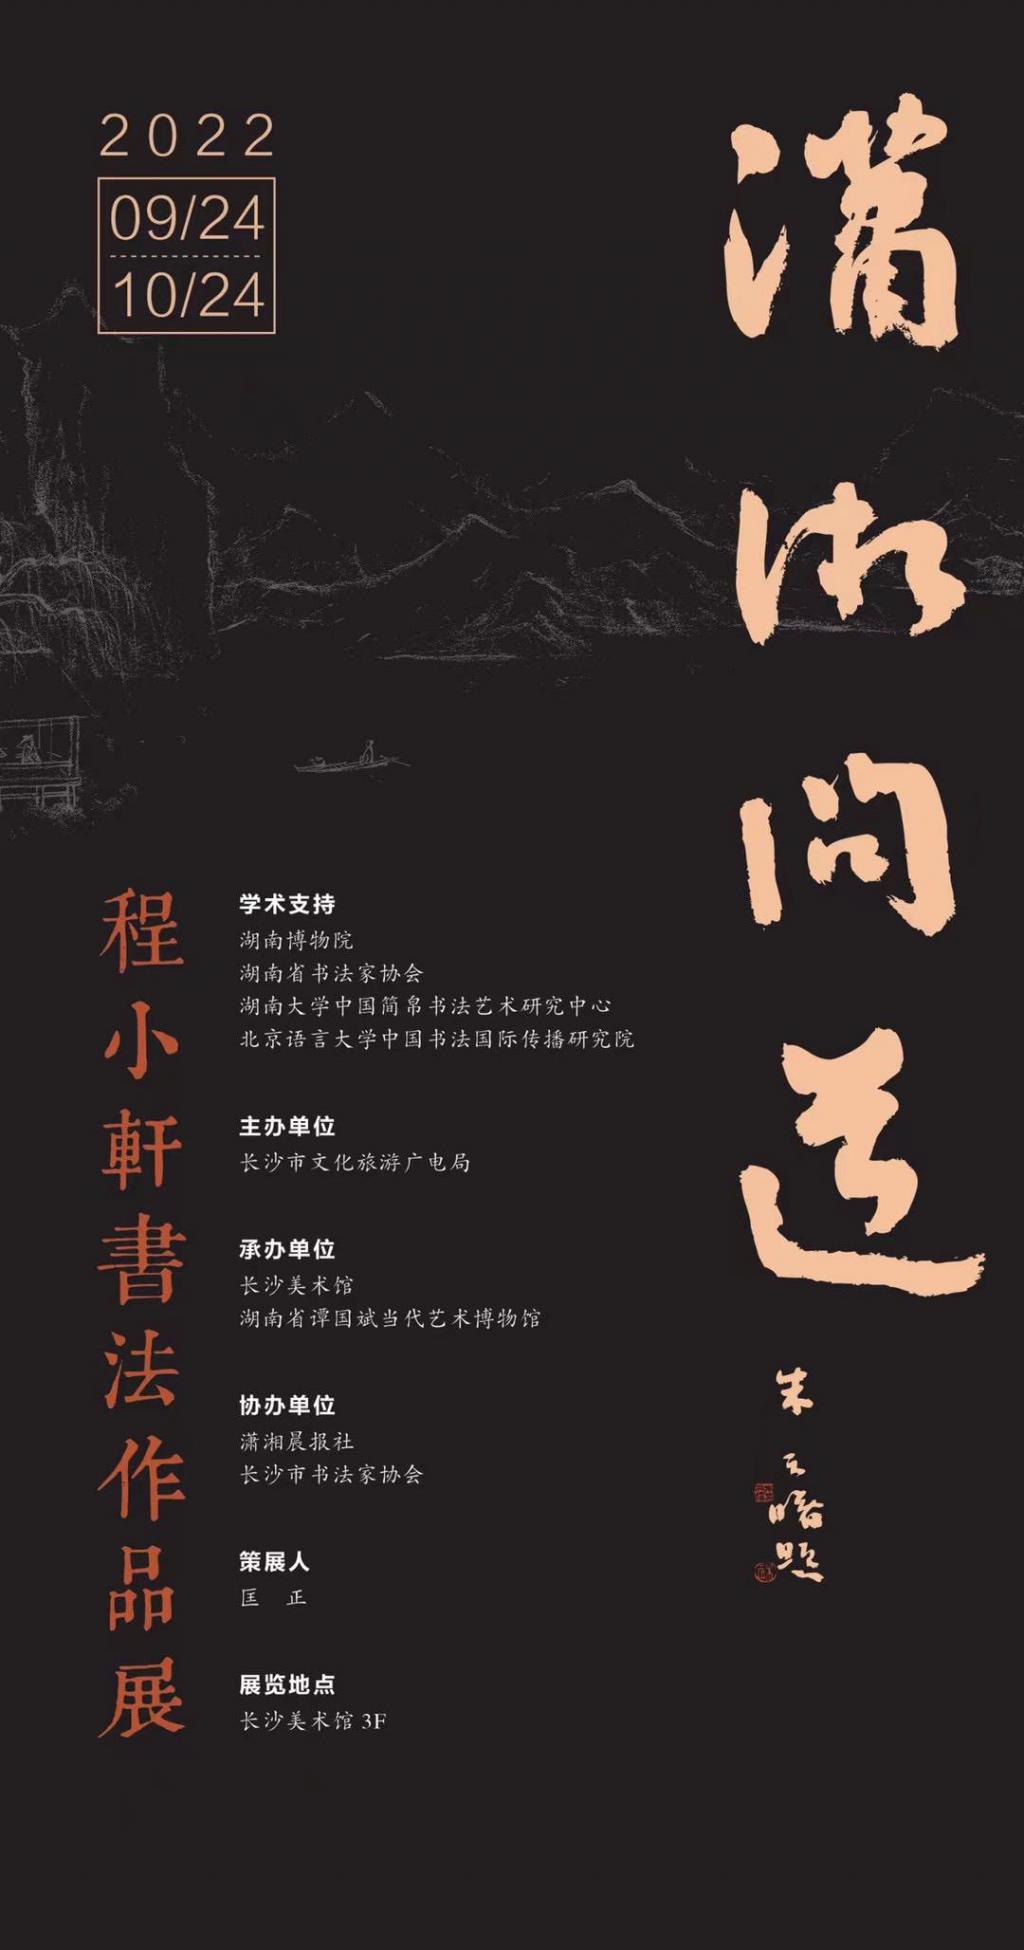 2022
09/24
10/24
潇湘问道
朱亚曙题
程小軒書法作品展
学术支持
湖南博物院
湖南省书法家协会
湖南大学中国简帛书法艺术研究中心
北京语言大学中国书法国际传播研究院
主办单位
长沙市文化旅游广电局
承办单位
长沙美术馆
湖南省谭国斌当代艺术博物馆
协办单位
潇湘晨报社
长沙市书法家协会
策展人
匡 正
展览地点
长沙美术馆 3F